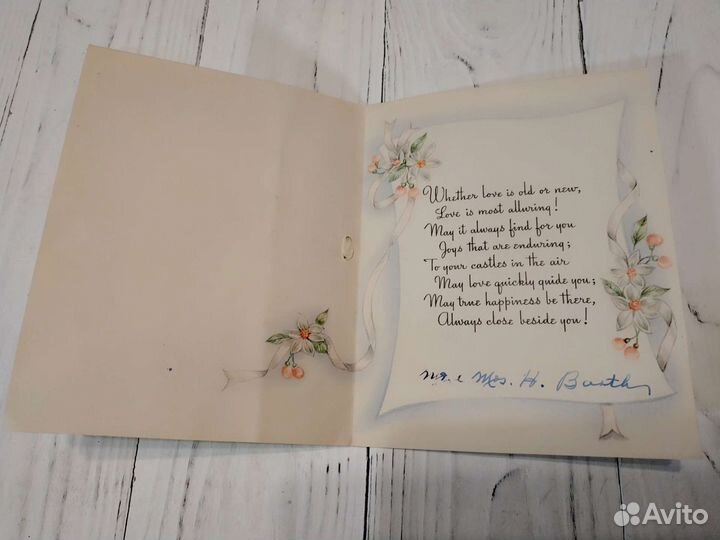 Whether love is old or new,
Love is most alluring!
May it always find for you
Joys that are enduring;
To your castles in the air
May love quickly guide you;
May true happiness be there,
Always close beside you!
Mr. & Mrs. H.
Avito